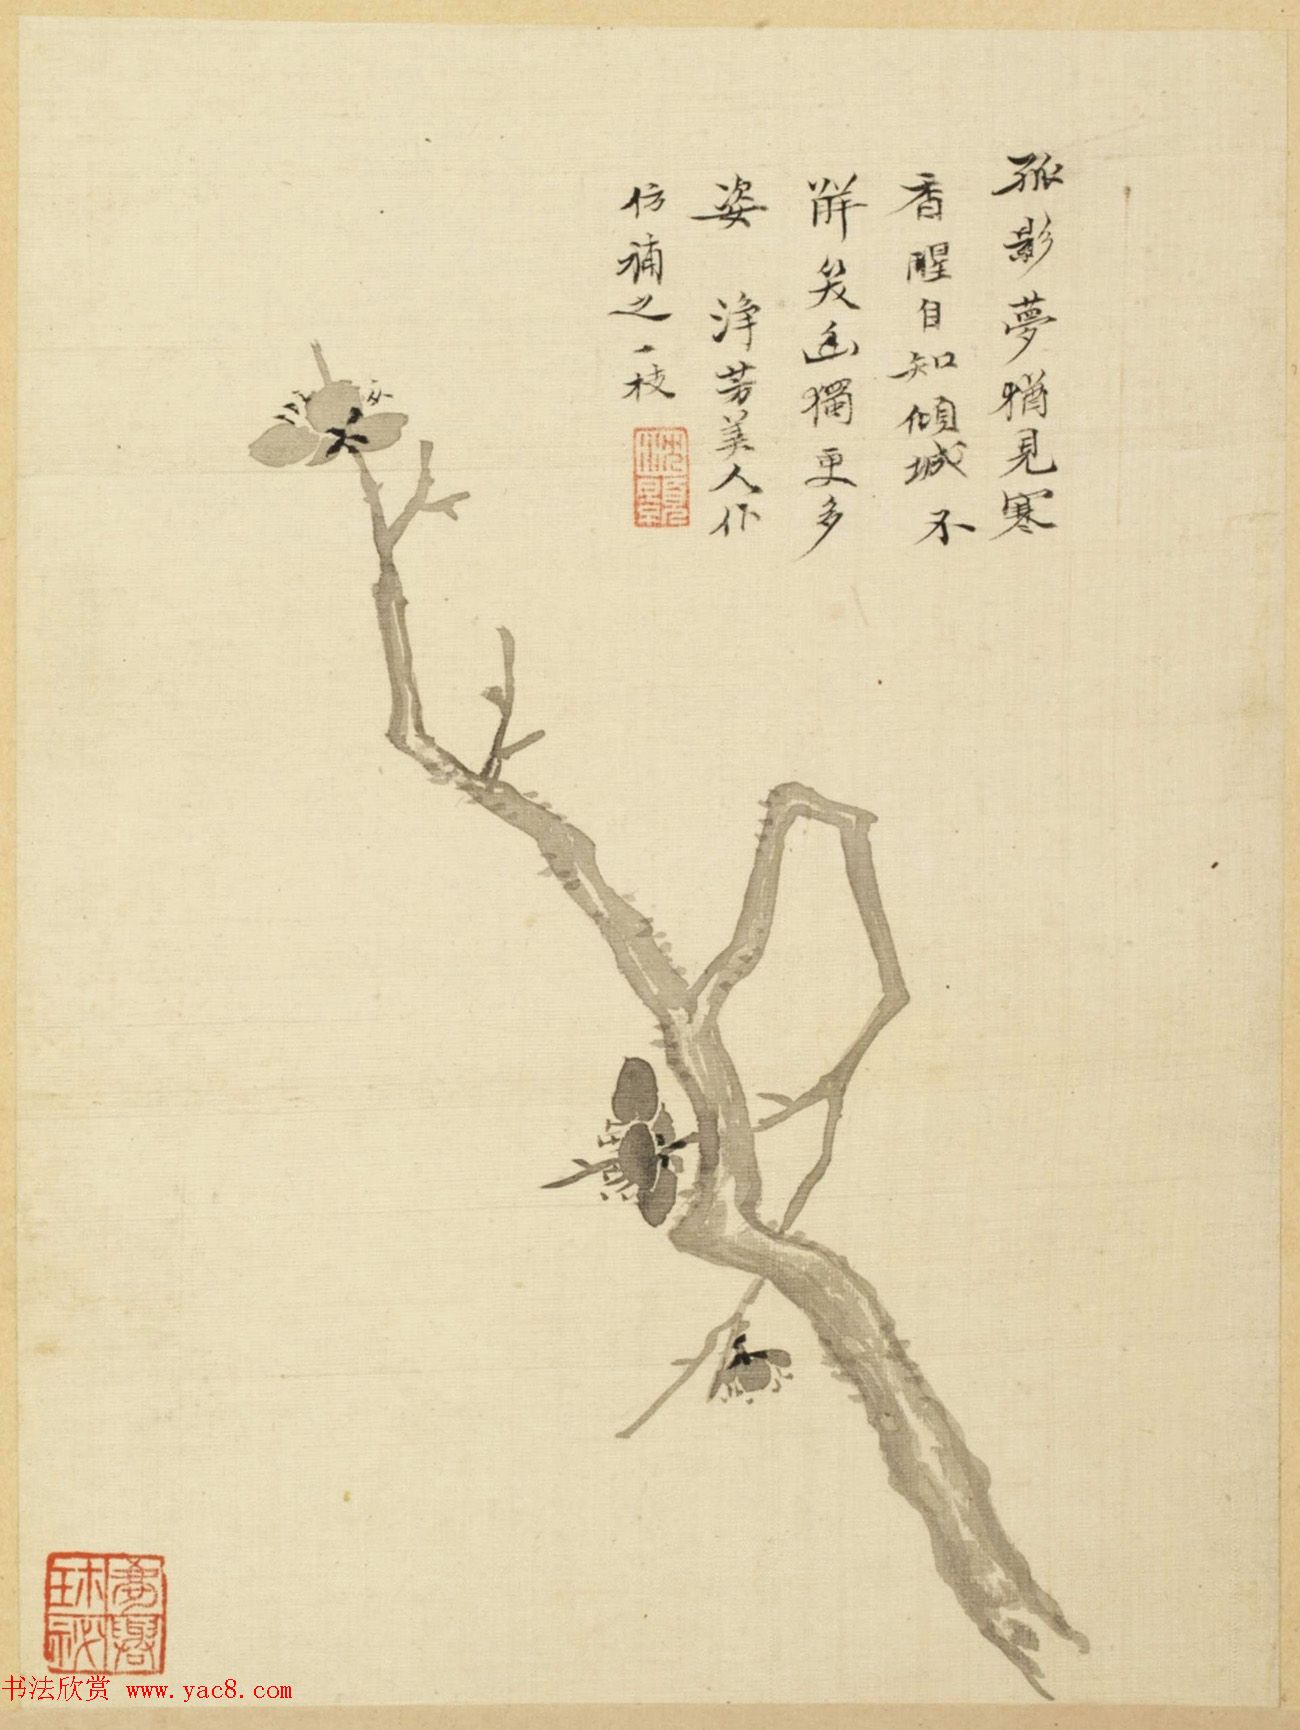 孤影夢猶見寒
香醒自知傾城不
解笑幽獨更多
姿　淨芳美人作
仿補之一枝
书法欣赏 www.yac8.com